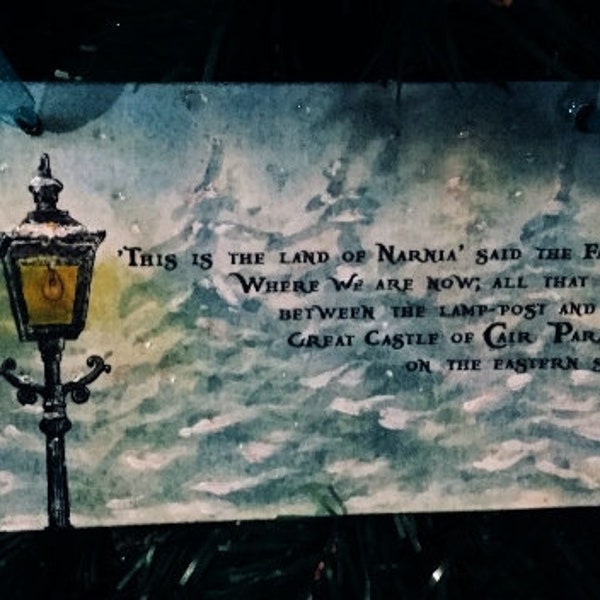 'This is the land of Narnia' said the Fa
Where we are now; all that
between the lamp-post and
Great Castle of Cair Para
on the eastern s